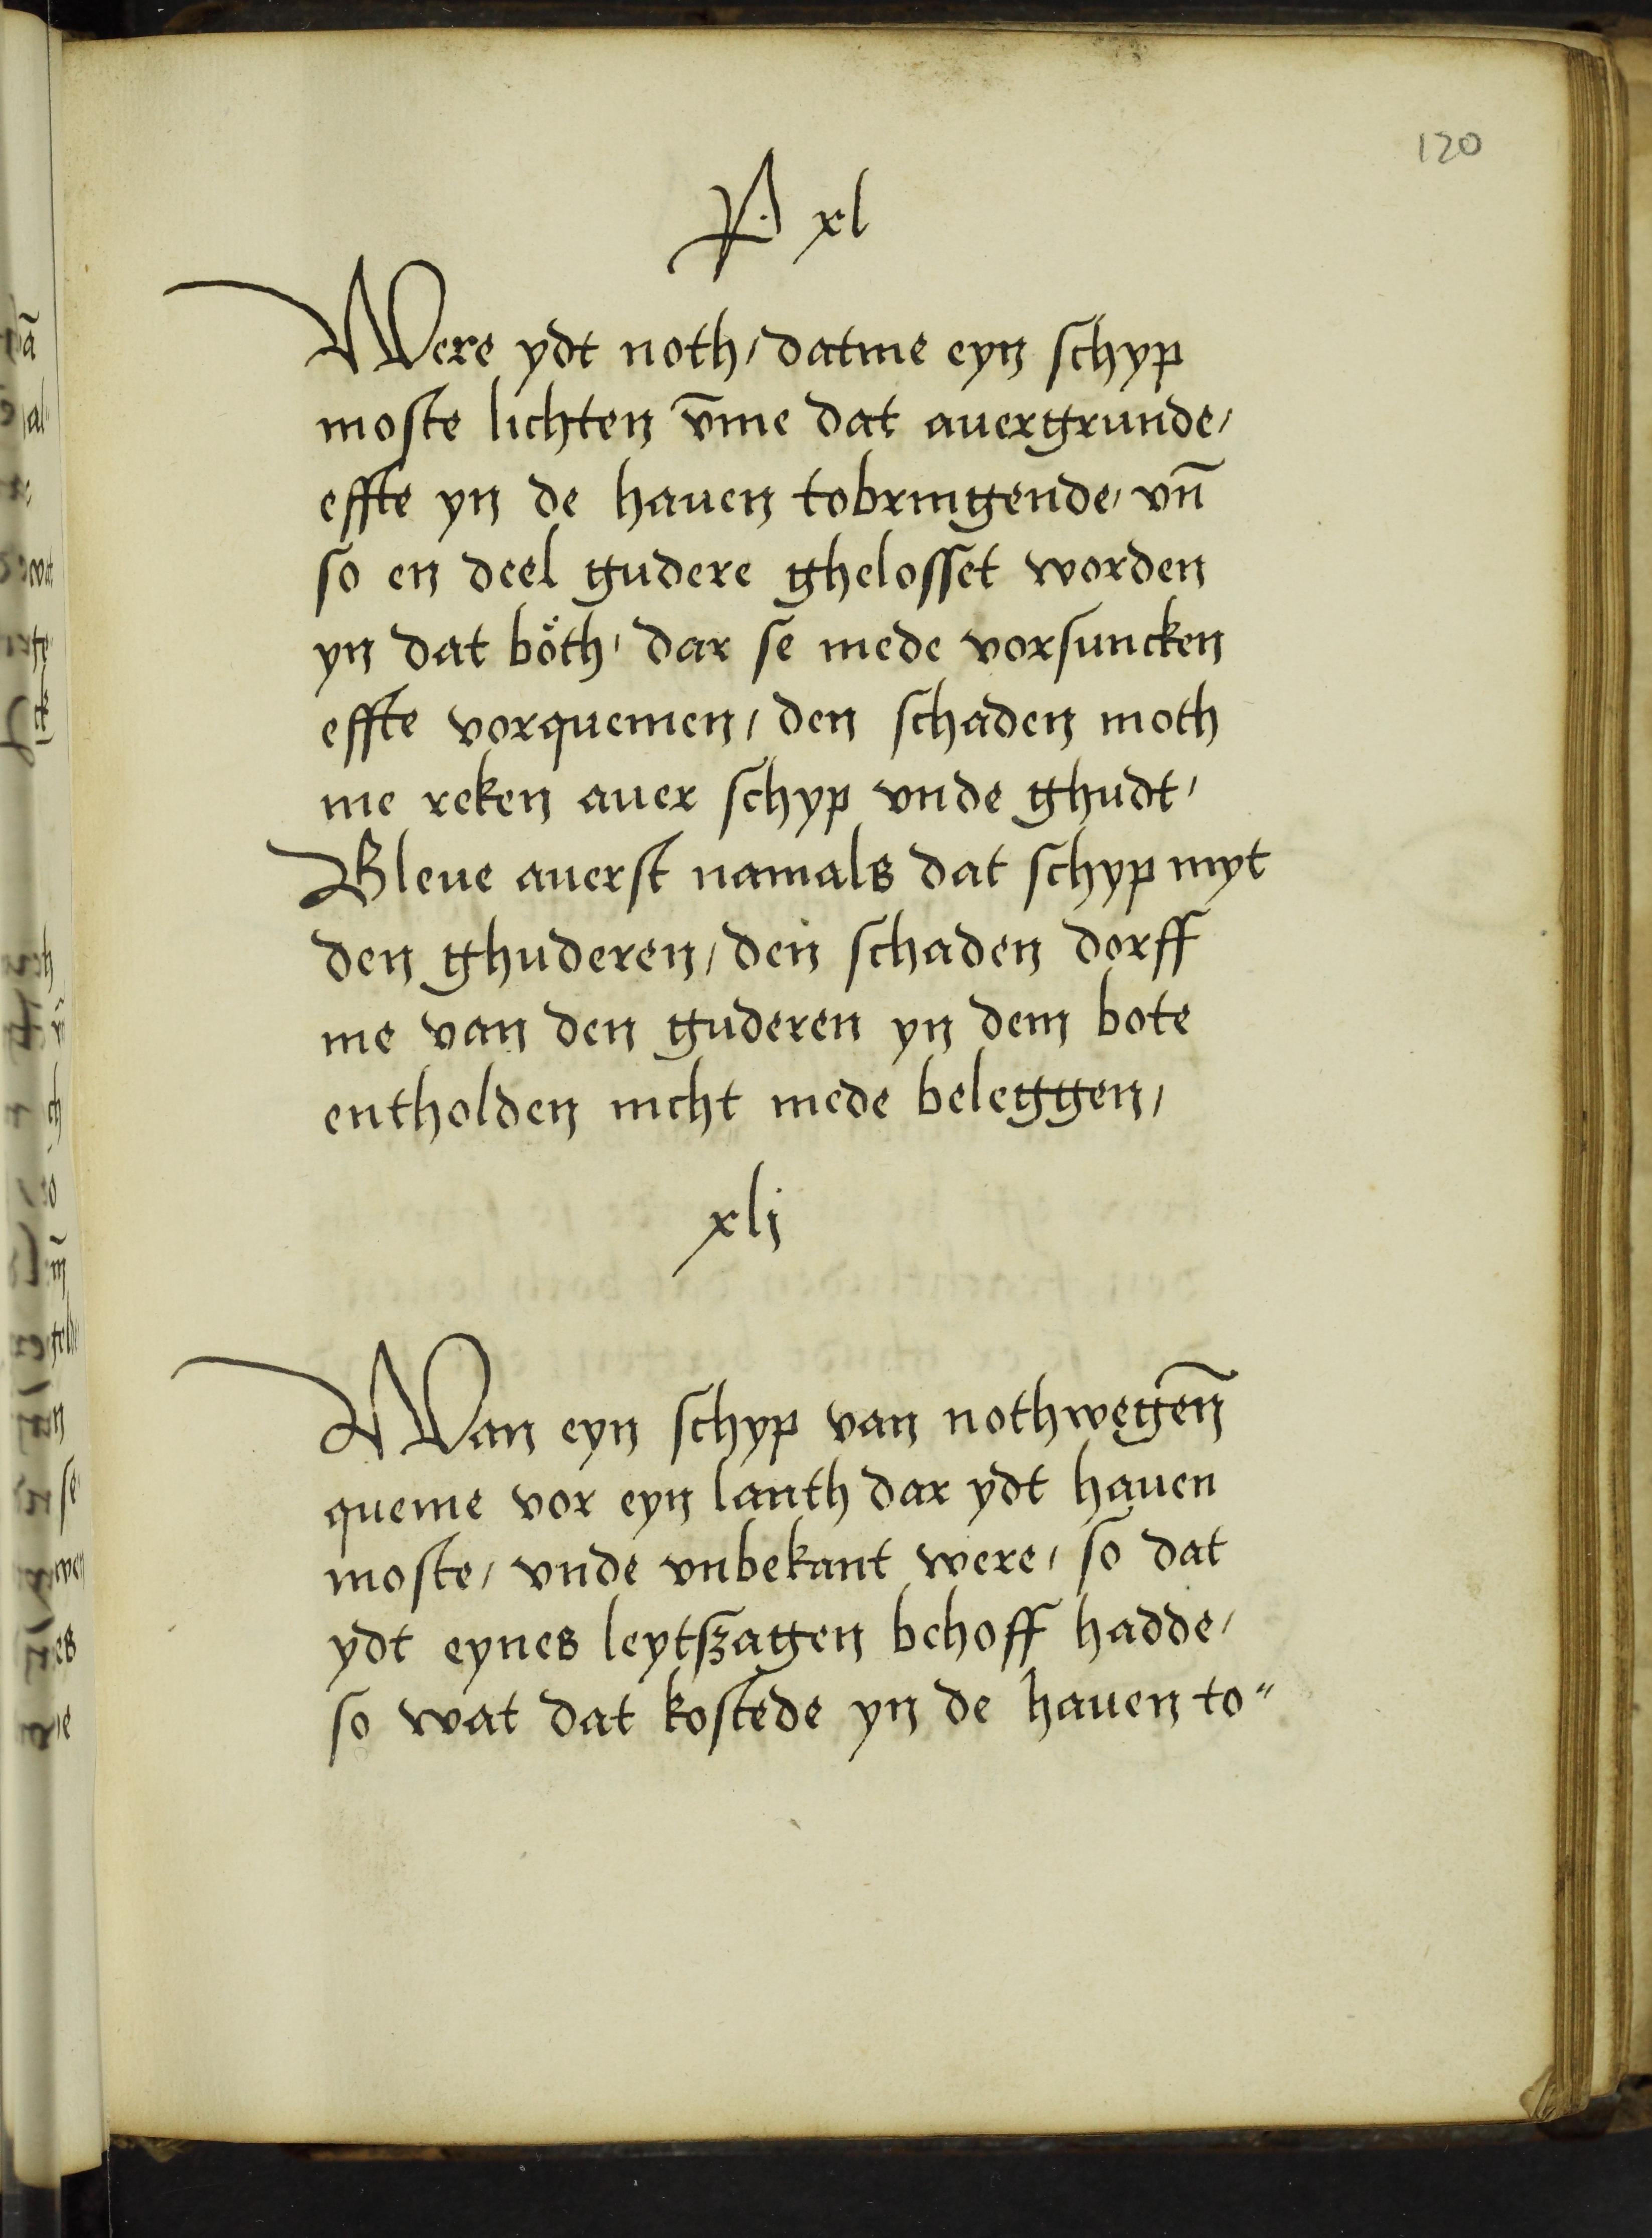 120
P. xl
Were ydt noth, datme eyn schyp
moste lichten v̄me dat auergrunde,
effte yn de hauen tobringende, vn̄
so en deel gudere ghelosset worden
yn dat böth, dar se mede vorsuncken
effte vorquemen, den schaden moth
me reken auer schyp vnde ghudt,
Bleue auerst namals dat schyp myt
den ghuderen, den schaden dorff
me van den guderen yn dem bote
entholden nicht mede beleggen,
xlj
Wan eyn schyp van nothwegen̄
queme vor eyn lanth dar ydt hauen
moste, vnde vnbekant were, so dat
ydt eynes leytszagen behoff hadde,
so wat dat kostede yn de hauen to"